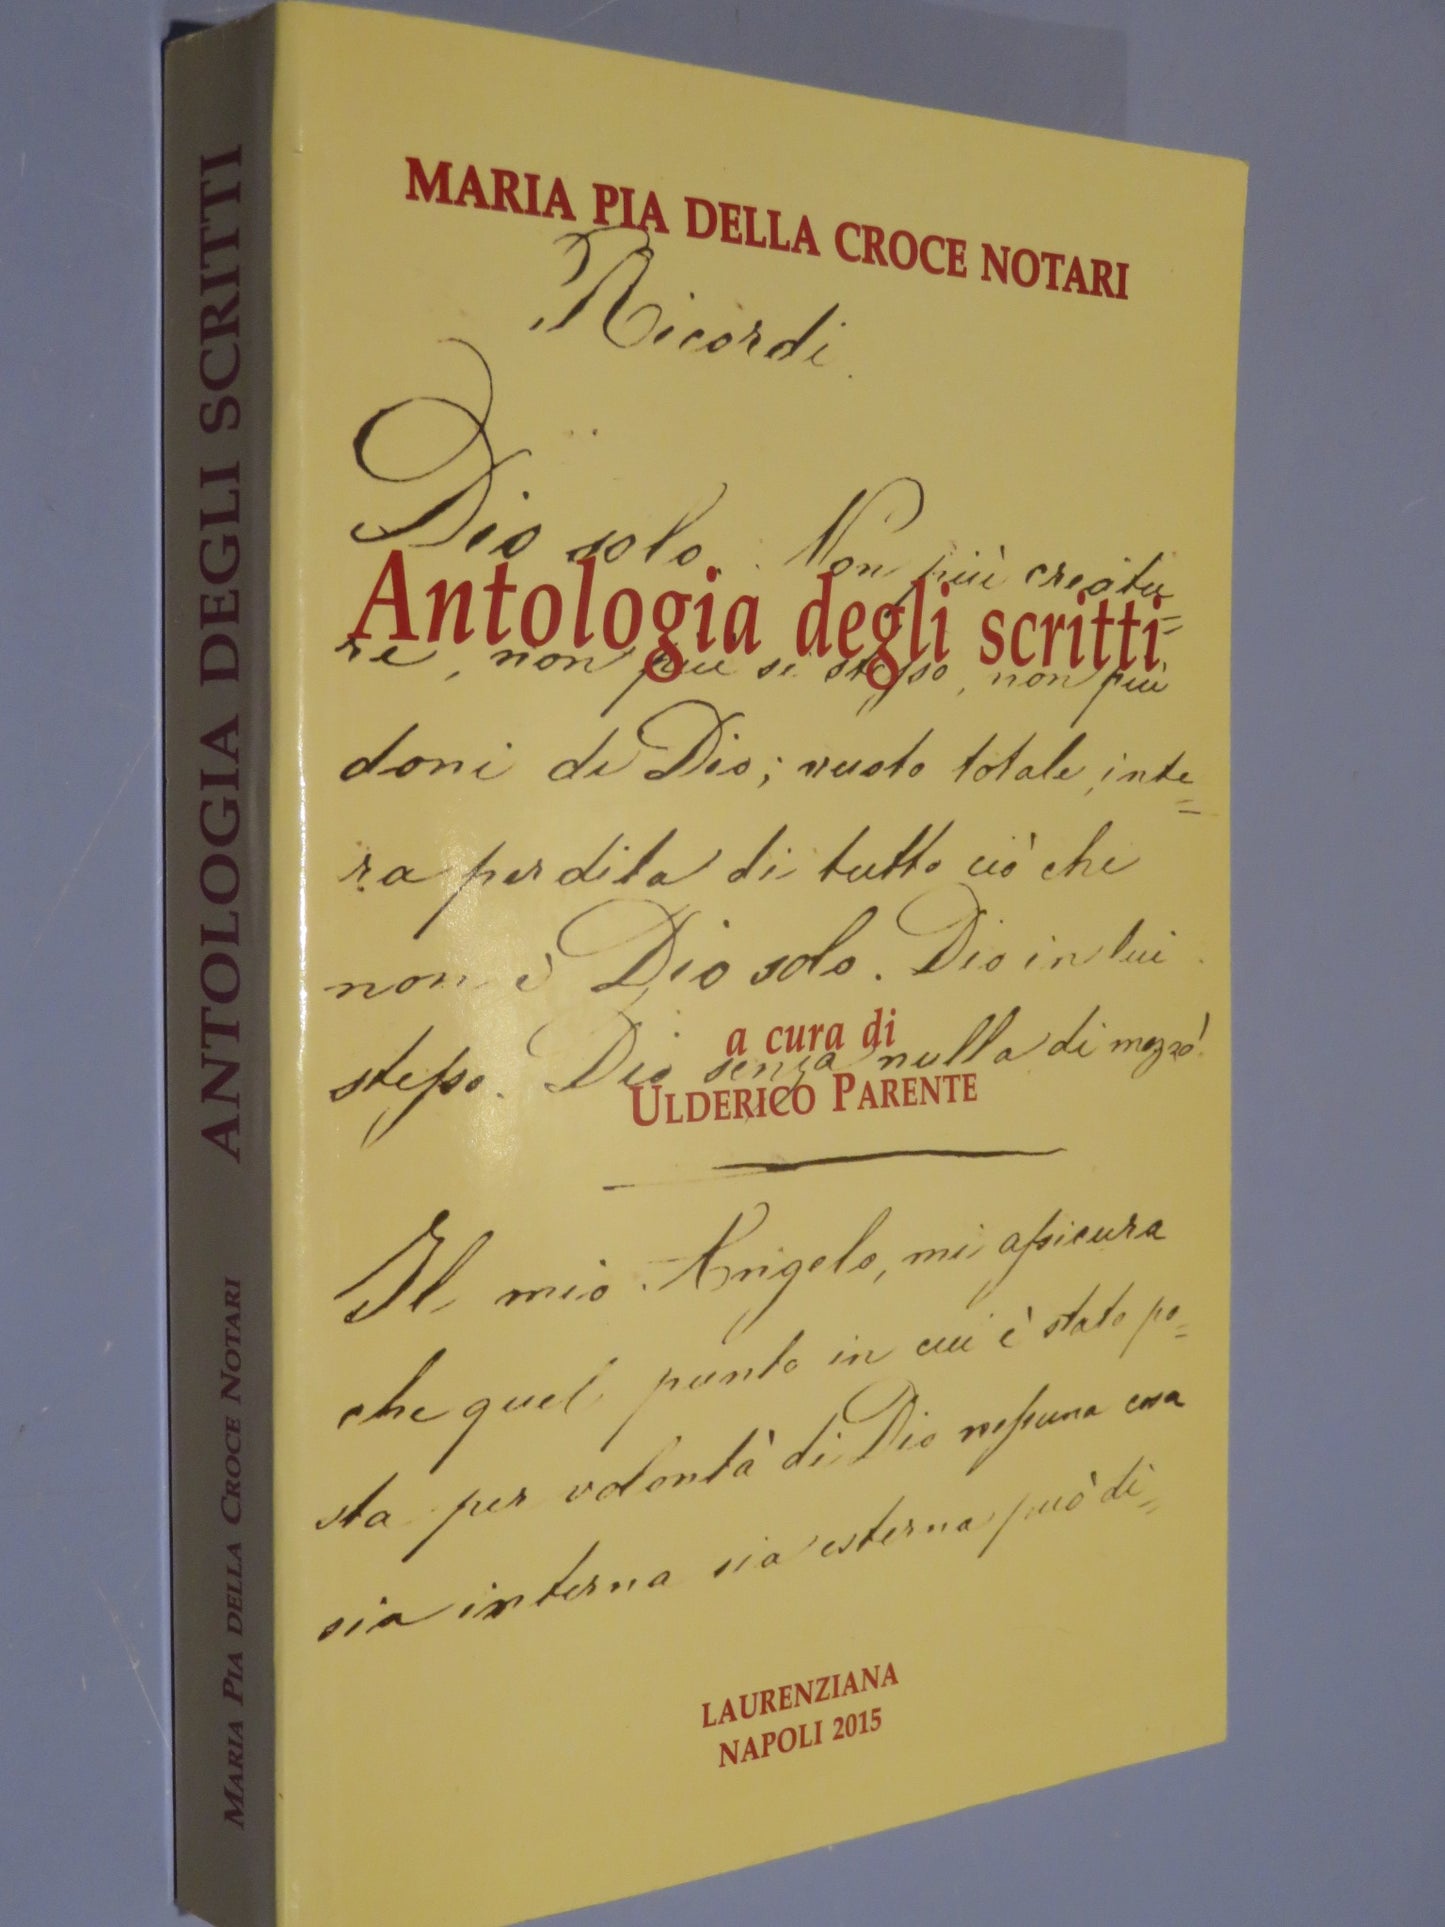 MARIA PIA DELLA CROCE NOTARI
Ricordi.
Dio solo. Non più creatu=
Antologia degli scritti
re, non più se stesso, non più
doni di Dio; vuoto totale, inte=
ra perdita di tutto ciò che
non è Dio solo. Dio in lui
stesso. Dio senza nulla di mezzo!
a cura di
ULDERICO PARENTE
Il mio Angelo, mi assicura
che quel punto in cui è stato po=
sta per volontà di Dio nessuna cosa
sia interna sia esterna può di=
LAURENZIANA
NAPOLI 2015
MARIA PIA DELLA CROCE NOTARI ANTOLOGIA DEGLI SCRITTI